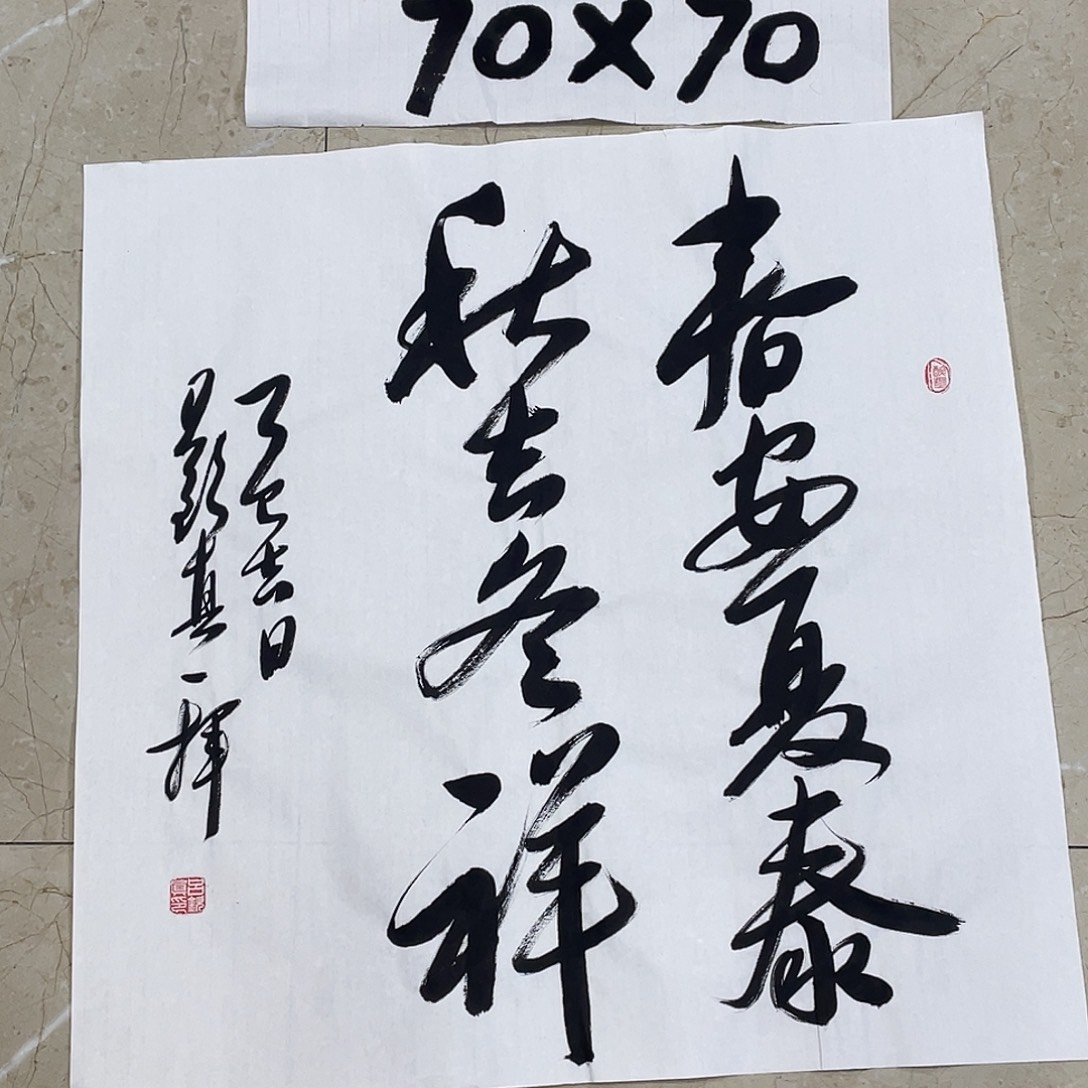 70×70
春安夏泰
秋吉冬祥
乙巳吉日
真一揮